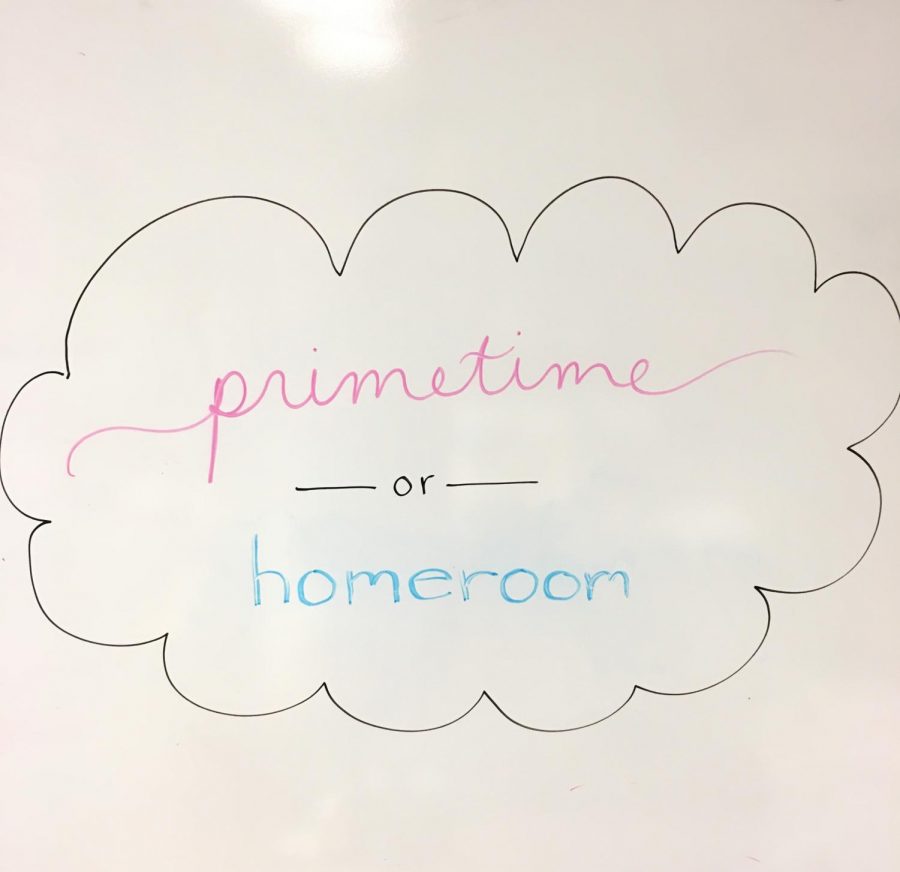 primetime
or
homeroom